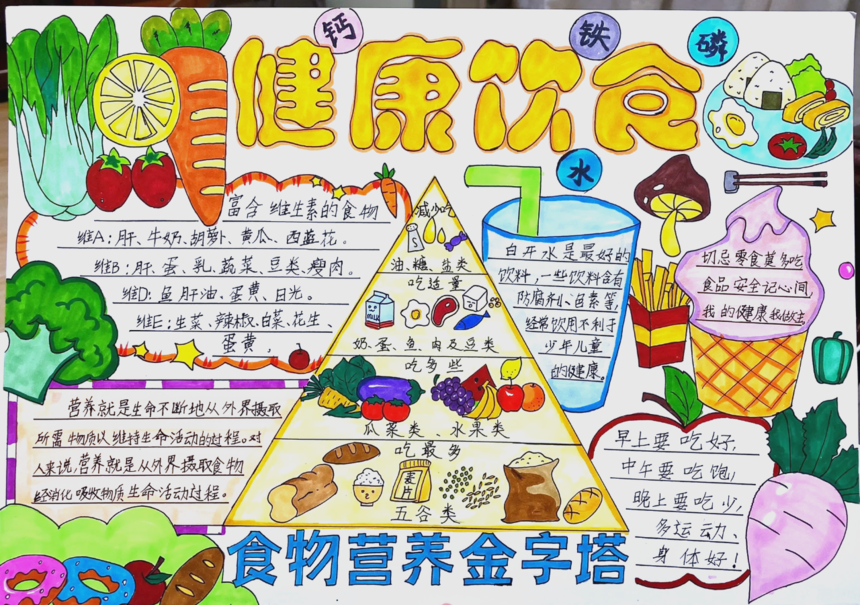 钙
铁
磷
健康饮食
水
富含维生素的食物
维A：肝、牛奶、胡萝卜、黄瓜、西蓝花。
维B：肝、蛋、乳、蔬菜、豆类、瘦肉。
维D：鱼肝油、蛋黄、日光。
维E：生菜、辣椒、白菜、花生、
蛋黄，
营养就是生命不断地从外界摄取
所需物质以维持生命活动的过程。对
人来说，营养就是从外界摄取食物
经消化吸收物质生命活动过程。
减少吃
S
油、糖、盐类
吃适量
奶、蛋、鱼、肉及豆类
吃多些
瓜菜类、水果类
吃最多
麦片
五谷类
食物营养金字塔
白开水是最好的
饮料，一些饮料含有
防腐剂、色素等，
经常饮用不利于
少年儿童
的健康。
切忌零食莫多吃
食品安全记心间
我的健康我做主
早上要吃好，
中午要吃饱，
晚上要吃少，
多运动、
身体好！